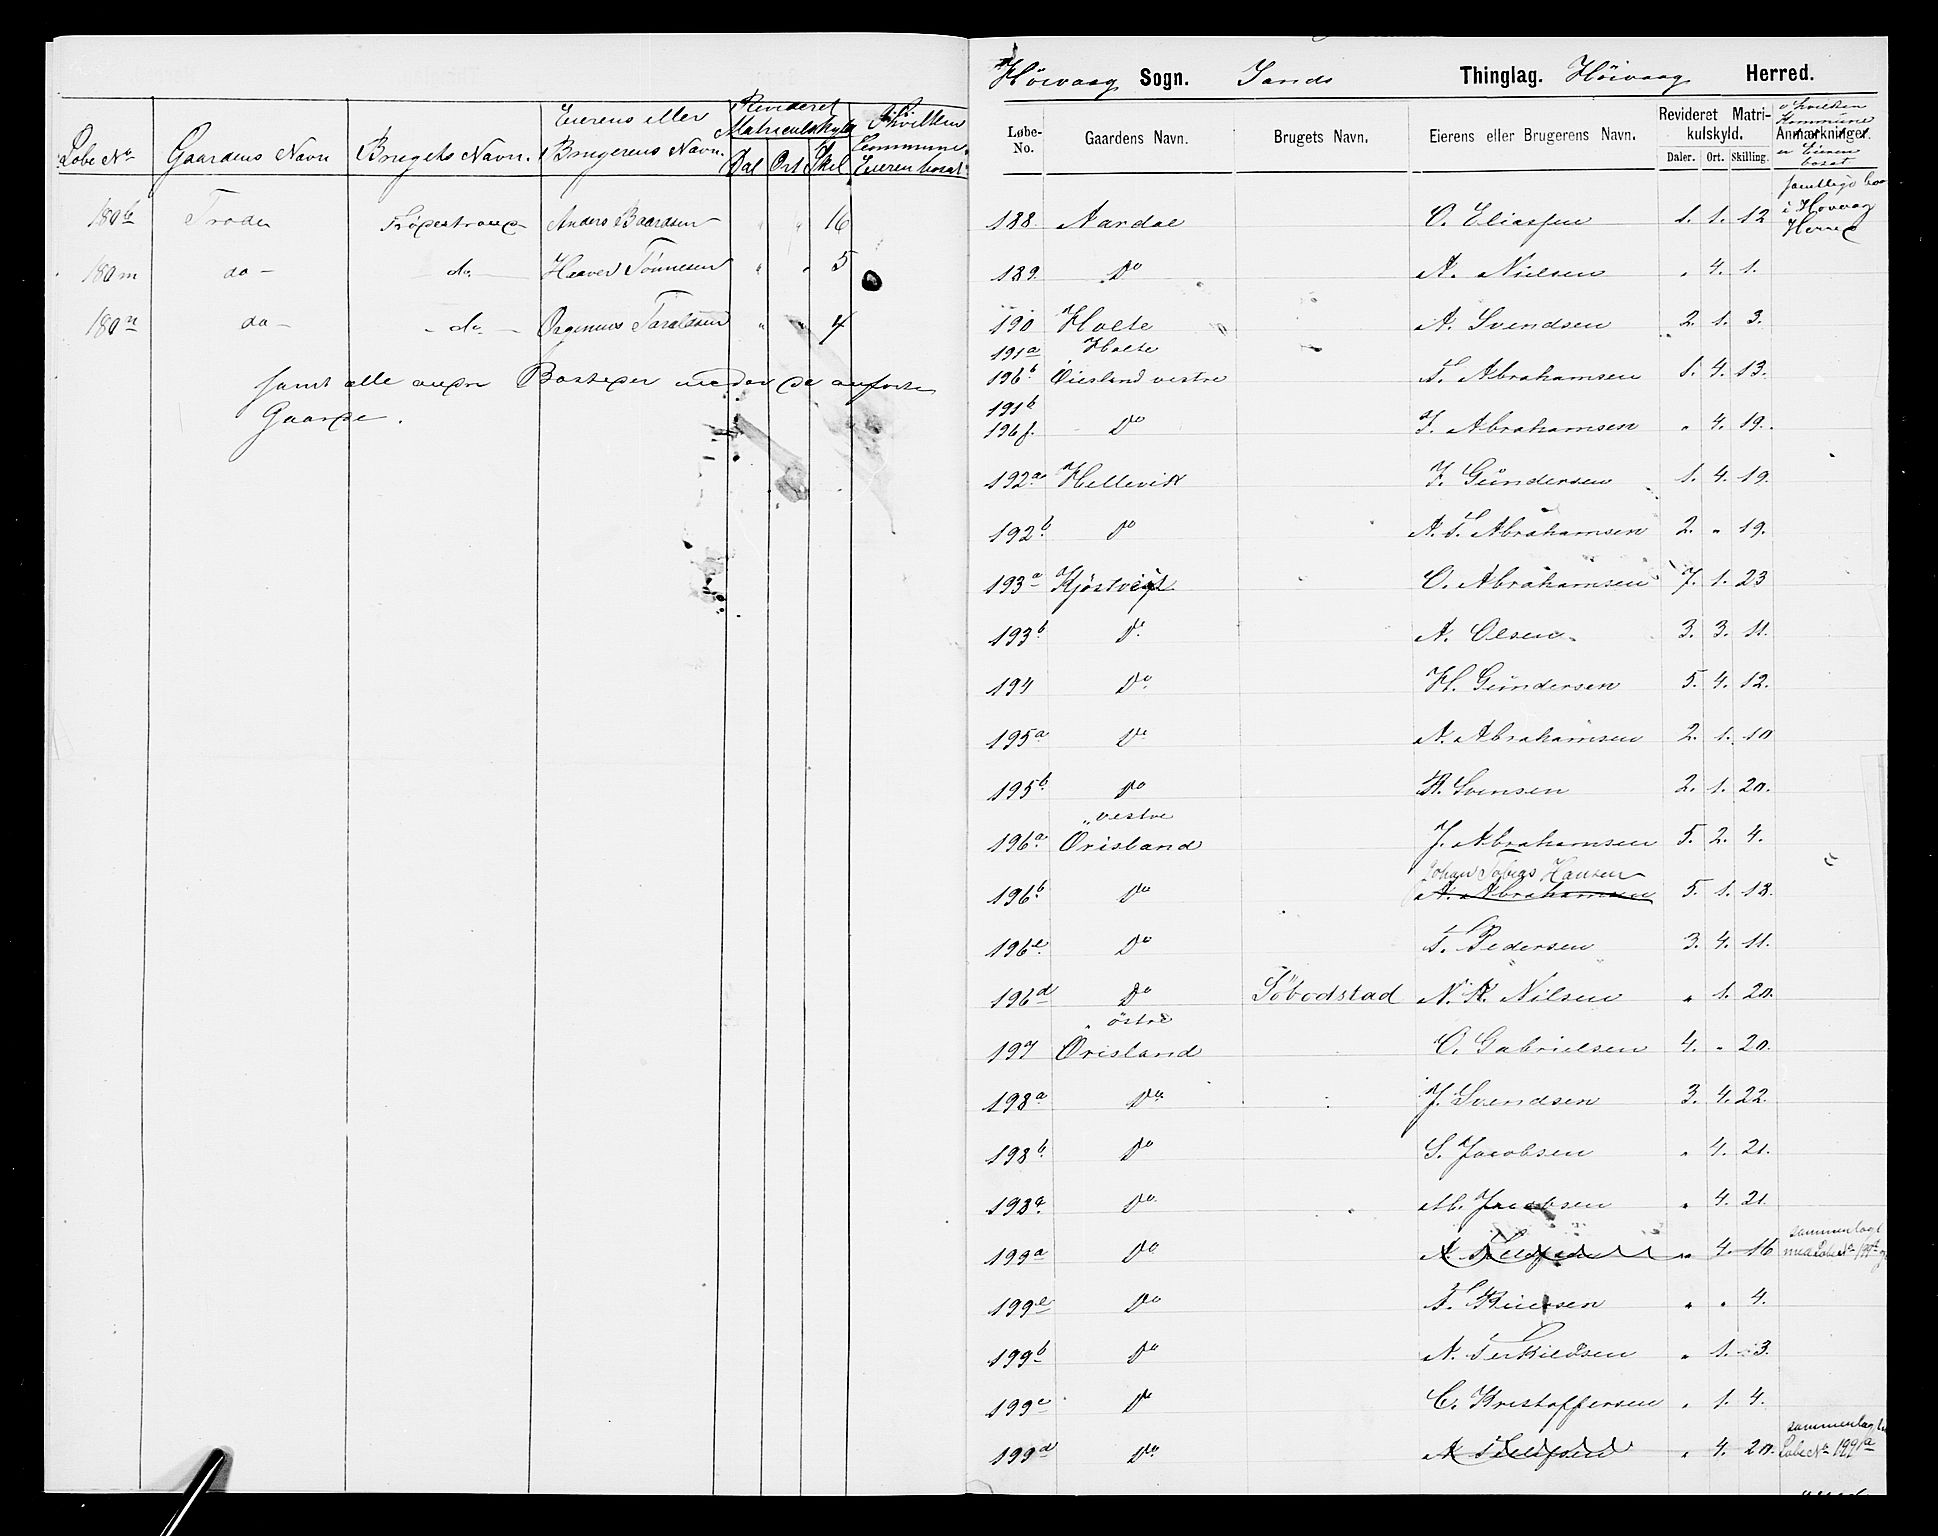 Løbe No Gaardens Navn Brugets Navn. Eierens eller Brugerens Navn. Revideret Matriculskyld Dal Ort Skil I hvilken Commune Eieren bosat
180 Trode Anders Baardsen " " 16
180m do - do - Tønnesen " " 5
180n do - - do - Taraldsen " " 4
samt alle andre
Gaarde.
Høivaag Sogn. Sands Thinglag. Høivaag Herred.
Løbe-No. Gaardens Navn. Brugets Navn. Eierens eller Brugerens Navn. Revideret Matrikulskyld. Daler. Ort. Skilling. Anmærkninger. i hvilken Kommune er Eieren bosat
188. Aardal O. Eliassen 1. 1. 12 samtlige bo i Høvaag Herred
189. Do A. Nielsen " 4. 1.
190 Holte A. Svendsen 2. 1. 3.
191a Holte
196b Øiesland vestre T. Abrahamsen 1. 4. 13.
191b
196f. Do T. Abrahamsen " 4. 19.
192a Hellevik J. Gundersen 1. 4. 19.
192b Do A. T. Abrahamsen 2. " 19.
193a Kjøstvigt O. Abrahamsen 7. 1. 23
193b Do A. Olsen 3. 3. 11.
194 Do H. Gundersen 5. 4. 12.
195a Do A. Abrahamsen 2. 1. 10
195b Do R. Svensen 2. 1. 20.
" vestre
196a Øiesland J. Abrahamsen 5. 2. 4.
Johan Tobias Hansen
196b Do A. Abrahamsen 5. 1. 13.
196c Do T. Pedersen 3. 4. 11.
196d Do Søbodstad N. K. Nilsen " 1. 20.
" østre
197 Øiesland O. Gabrielsen 4. " 20.
198a Do J. Svendsen 3. 4. 22.
198b Do S. Jacobsen " 4. 21.
198c Do M. Jacobsen " 4. 21.
199a Do " 4. 16 sammenlagt med Løbe No
199e Do " " 4.
199b Do N. Terkildsen " 1. 3.
199c Do C. Kristoffersen " 1. 4.
199d Do " 4. 20. sammenlagt Løbe No 199a